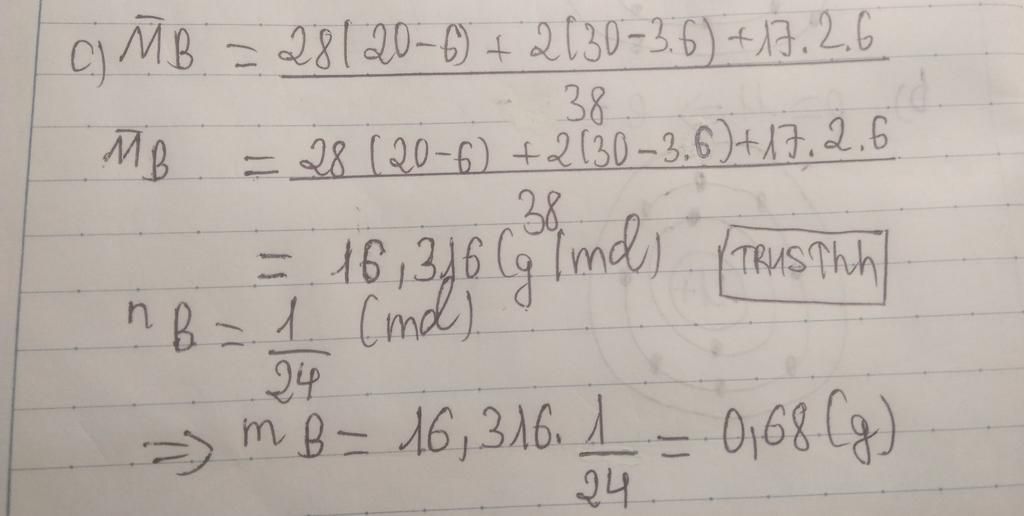 c) M̄B = 28(20-6) + 2(30-3.6) + 17.2.6
38
M̄B = 28(20-6) + 2(30-3.6) + 17.2.6
38
= 16,316 (g/mol) TRUSThh
nB = 1/24 (mol)
=> mB = 16,316. 1/24 = 0,68 (g)